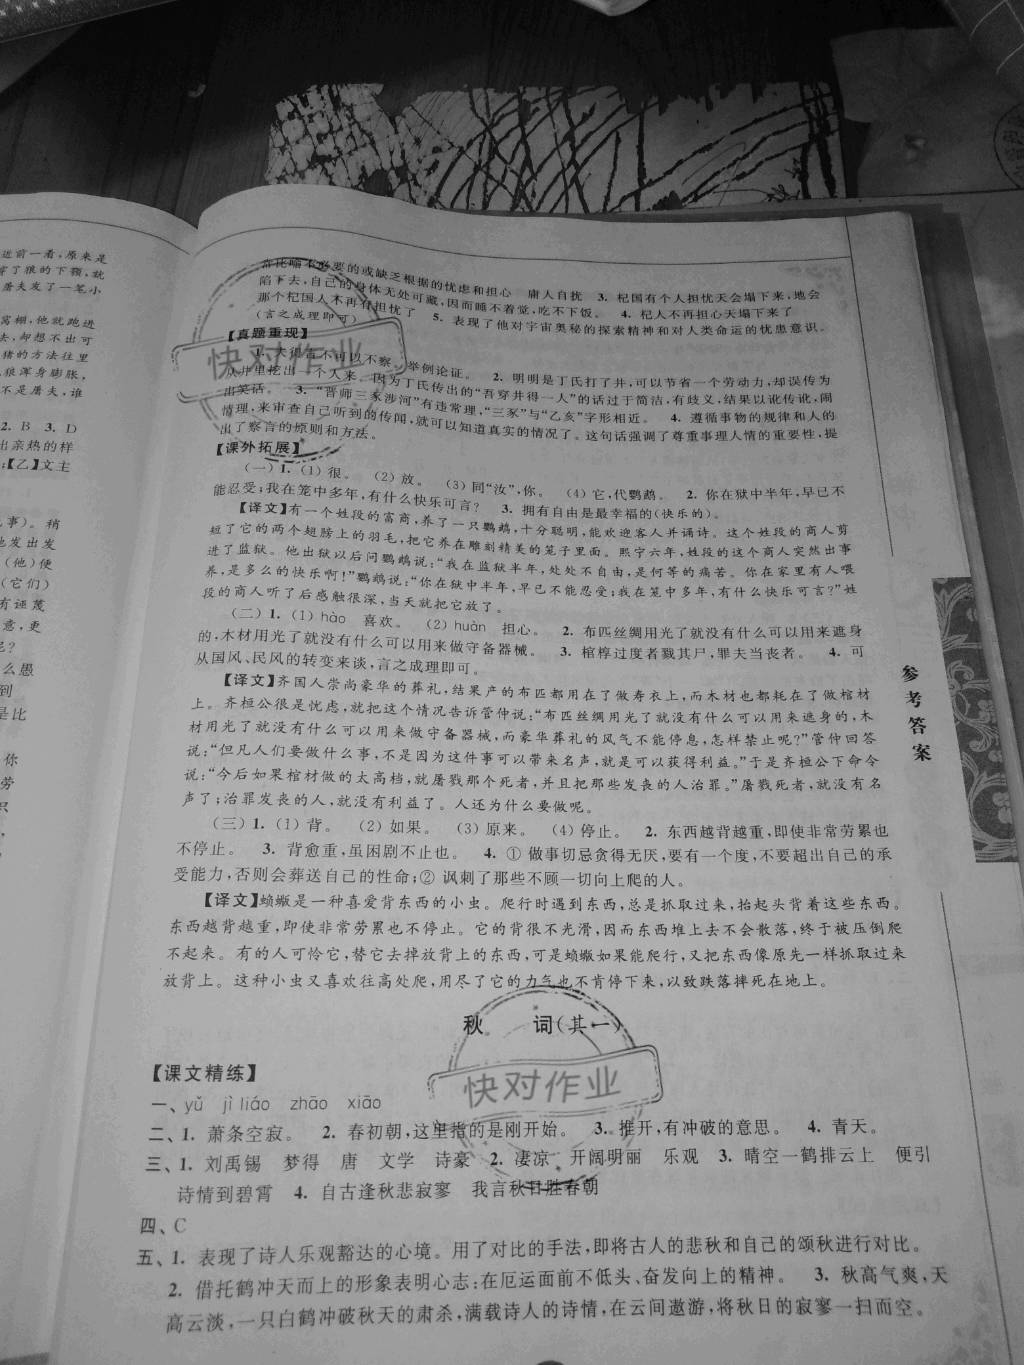 近前一看,原来是
穿了狼的下颚,就
屠夫发了一笔小
窝棚,他就跑进
去,却想不出可
猪的方法往里
狼浑身膨胀,
不是屠夫,谁
2. B 3. D
出亲热的样
;【乙】文主
事)。稍
地发出发
(他)便
(它们)
有诬蔑
意,更
呢?
么愚
到
是比
你
劳
只
常比喻不必要的或缺乏根据的忧虑和担心 庸人自扰 3. 杞国有个人担忧天会塌下来,地会
陷下去,自己的身体无处可藏,因而睡不着觉,吃不下饭。 4. 杞人不再担心天塌下来了
那个杞国人不再有担忧了 5. 表现了他对宇宙奥秘的探索精神和对人类命运的忧患意识。
(言之成理即可)
【真题重现】
不可以不察 举例论证。 2. 明明是丁氏打了井,可以节省一个劳动力,却误传为
从井里挖出一个人来。因为丁氏传出的“吾穿井得一人”的话过于简洁,有歧义,结果以讹传讹,闹
出笑话。 3. “晋师三豕涉河”有违常理,“三豕”与“乙亥”字形相近。 4. 遵循事物的规律和人的
情理,来审查自己听到的传闻,就可以知道真实的情况了。这句话强调了尊重事理人情的重要性,提
出了察言的原则和方法。
【课外拓展】
(一)1. (1) 很。 (2) 放。 (3) 同“汝”,你。 (4) 它,代鹦鹉。 2. 你在狱中半年,早已不
能忍受;我在笼中多年,有什么快乐可言? 3. 拥有自由是最幸福的(快乐的)。
【译文】有一个姓段的富商,养了一只鹦鹉,十分聪明,能欢迎客人并诵诗。这个姓段的商人剪
短了它的两个翅膀上的羽毛,把它养在雕刻精美的笼子里面。熙宁六年,姓段的这个商人突然出事
进了监狱。他出狱以后问鹦鹉说:“我在监狱半年,处处不自由,是何等的痛苦。你在家里有人喂
养,是多么的快乐啊!”鹦鹉说:“你在狱中半年,早已不能忍受;我在笼中多年,有什么快乐可言?”姓
段的商人听了后感触很深,当天就把它放了。
(二)1. (1) hào 喜欢。 (2) huàn 担心。 2. 布匹丝绸用光了就没有什么可以用来遮身
的,木材用光了就没有什么可以用来做守备器械。 3. 棺椁过度者戮其尸,罪夫当丧者。 4. 可
从国风、民风的转变来谈,言之成理即可。
【译文】齐国人崇尚豪华的葬礼,结果产的布匹都用在了做寿衣上,而木材也都耗在了做棺材
上。齐桓公很是忧虑,就把这个情况告诉管仲说:“布匹丝绸用光了就没有什么可以用来遮身的,木
材用光了就没有什么可以用来做守备器械,而豪华葬礼的风气不能停息,怎样禁止呢?”管仲回答
说:“但凡人们要做什么事,不是因为这件事可以带来名声,就是可以获得利益。”于是齐桓公下命令
说:“今后如果棺材做的太高档,就屠戮那个死者,并且把那些发丧的人治罪。”屠戮死者,就没有名
声了;治罪发丧的人,就没有利益了。人还为什么要做呢。
(三)1. (1) 背。 (2) 如果。 (3) 原来。 (4) 停止。 2. 东西越背越重,即使非常劳累也
不停止。 3. 背愈重,虽困剧不止也。 4. ① 做事切忌贪得无厌,要有一个度,不要超出自己的承
受能力,否则会葬送自己的性命;② 讽刺了那些不顾一切向上爬的人。
【译文】蝜蝂是一种喜爱背东西的小虫。爬行时遇到东西,总是抓取过来,抬起头背着这些东西。
东西越背越重,即使非常劳累也不停止。它的背很不光滑,因而东西堆上去不会散落,终于被压倒爬
不起来。有的人可怜它,替它去掉放背上的东西,可是蝜蝂如果能爬行,又把东西像原先一样抓取过来
放背上。这种小虫又喜欢往高处爬,用尽了它的力气也不肯停下来,以致跌落摔死在地上。
秋 词(其一)
【课文精练】
一、yǔ jì liáo zhāo xiāo
二、1. 萧条空寂。 2. 春初朝,这里指的是刚开始。 3. 推开,有冲破的意思。 4. 青天。
三、1. 刘禹锡 梦得 唐 文学 诗豪 2. 凄凉 开阔明丽 乐观 3. 晴空一鹤排云上 便引
诗情到碧霄 4. 自古逢秋悲寂寥 我言秋日胜春朝
四、C
五、1. 表现了诗人乐观豁达的心境。用了对比的手法,即将古人的悲秋和自己的颂秋进行对比。
2. 借托鹤冲天而上的形象表明心志:在厄运面前不低头、奋发向上的精神。 3. 秋高气爽,天
高云淡,一只白鹤冲破秋天的肃杀,满载诗人的诗情,在云间遨游,将秋日的寂寥一扫而空。
参考答案
快对作业
快对作业